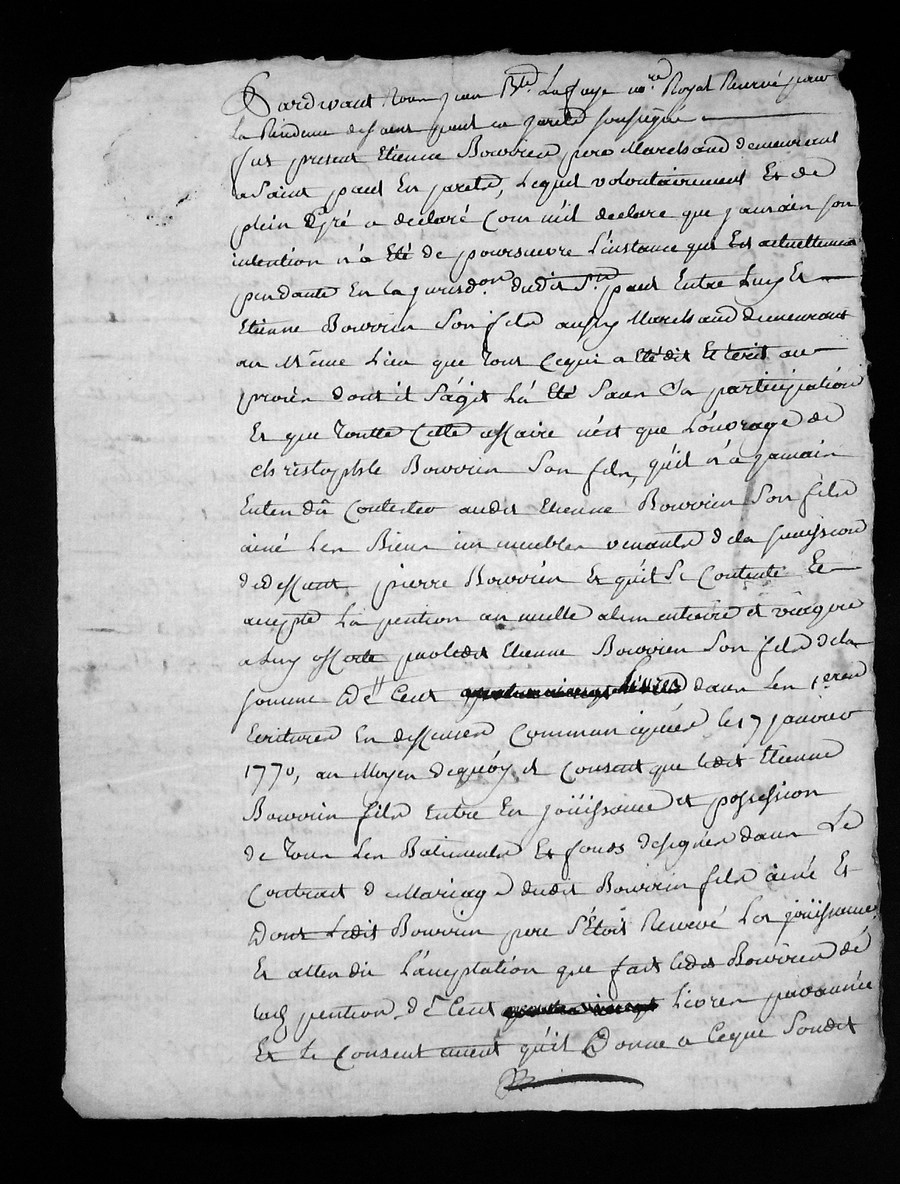 Pardevant Nous jean Bte. Lafaye nore. Royal Reservé pour
la Residence de Saint paul en jarets soussigné
fut present Etienne Bouvrin pere Marchand demeurent
a Saint paul En jarets, Lequel volontairement Et de
plein Gré a declaré Comm'il declare que jamais son
intention n'a Eté de poursuivre L'instance qui Est actuellement
pendante En la jurisdon. dudit St. paul Entre Luy Et
Etienne Bouvrin Son fils aussy Marchand demeurant
au Même Lieu que tout Cequi a Eté dit Et écrit au
procès dont il S'agit L'a Eté Sans Sa participation
Et que toutte Cette affaire n'est que L'ouvrage de
christophle Bouvrin Son fils, qu'il n'a jamais
Entendû Contester audit Etienne Bouvrin Son fils
ainé Les Biens immeubles venants de la
de deffunt pierre Bouvrin Et qu'il Se Contente Et
accepte La pention annuelle alimentaire et viagere
a Luy offerte par ledit Etienne Bouvrin Son fils de la
somme De Cent livres dans Les 1eres
Ecritures En deffenses Communiquées le 17 janvier
1770, au Moyen dequoy il Consent que ledit Etienne
Bouvrin fils Entre En joüissance et possession
de tous Les Batiments Et fonds designés dans Le
Contrat de Mariage dudit Bouvrin fils ainé Et
Dont Ledit Bouvrin pere S'Etoit Reservé La joüissance,
Et attendu L'acceptation que fait ledit Bouvrin de
lad. pention de Cent Livres par année
Et le Consentement qu'il Donne a Ceque Sondit